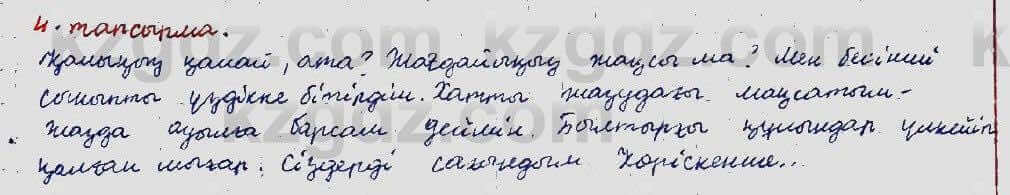 4-тапсырма.
Қалыңыз қалай, ата? Жағдайыңыз жақсы ма? Мен бесінші
сыныпты үздікке бітірдім. Хатты жазудағы мақсатым-
жазда ауылға барсам деймін. Былтырғы құлындар үлкейіп
қалған шығар. Сіздерді сағындым Көріскенше...